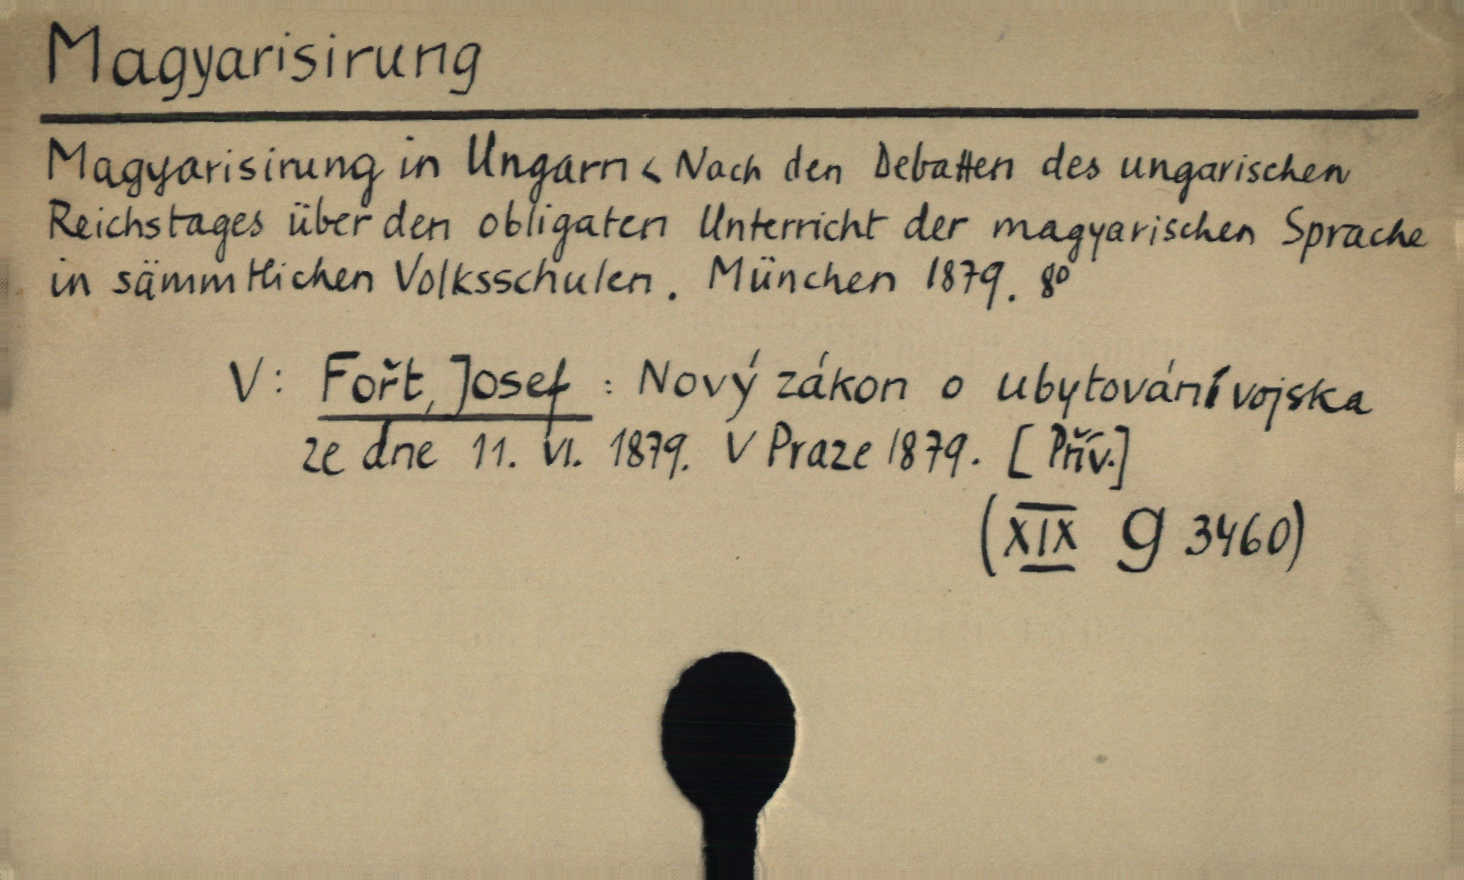 Magyarisirung
Magyarisirung in Ungarn < Nach den Debatten des ungarischen
Reichstages über den obligaten Unterricht der magyarischen Sprache
in sämmtlichen Volksschulen. München 1879. 8º
V: Fořt, Josef : Nový zákon o ubytování vojska
ze dne 11. VI. 1879. V Praze 1879. [Přív.]
(XIX g 3460)